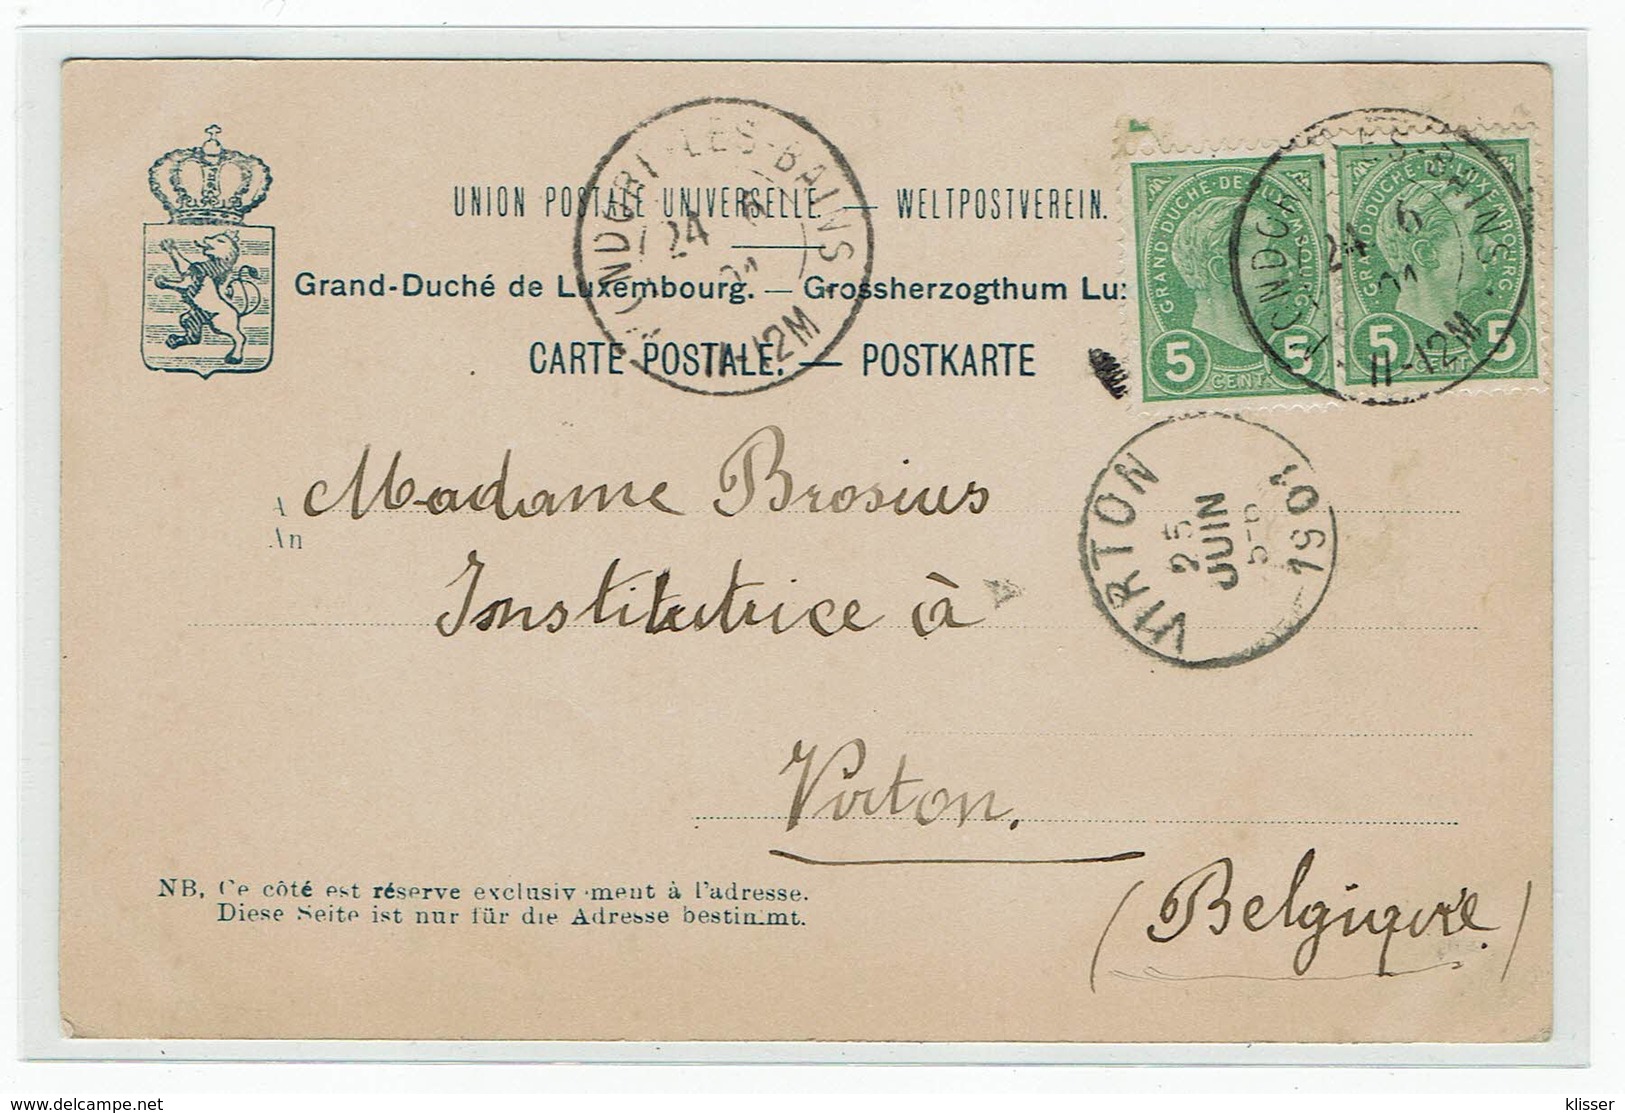 UNION POSTALE UNIVERSELLE. — WELTPOSTVEREIN.
Grand-Duché de Luxembourg. — Grossherzogthum Lu
CARTE POSTALE. — POSTKARTE
MONDORF-LES-BAINS
24 6 01
11-12M
GRAND DUCHÉ DE LUXEMBOURG
5 5
CENT.
GRAND DUCHÉ DE LUXEMBOURG
5 5
CENT.
MONDORF-LES-BAINS
24 6 01
11-12M
VIRTON
25
JUIN
1901
A Madame Brosius
An
Institutrice à
Virton.
(Belgique.)
NB. Ce côté est réservé exclusivement à l'adresse.
Diese Seite ist nur für die Adresse bestimmt.
www.delcampe.net
klisser